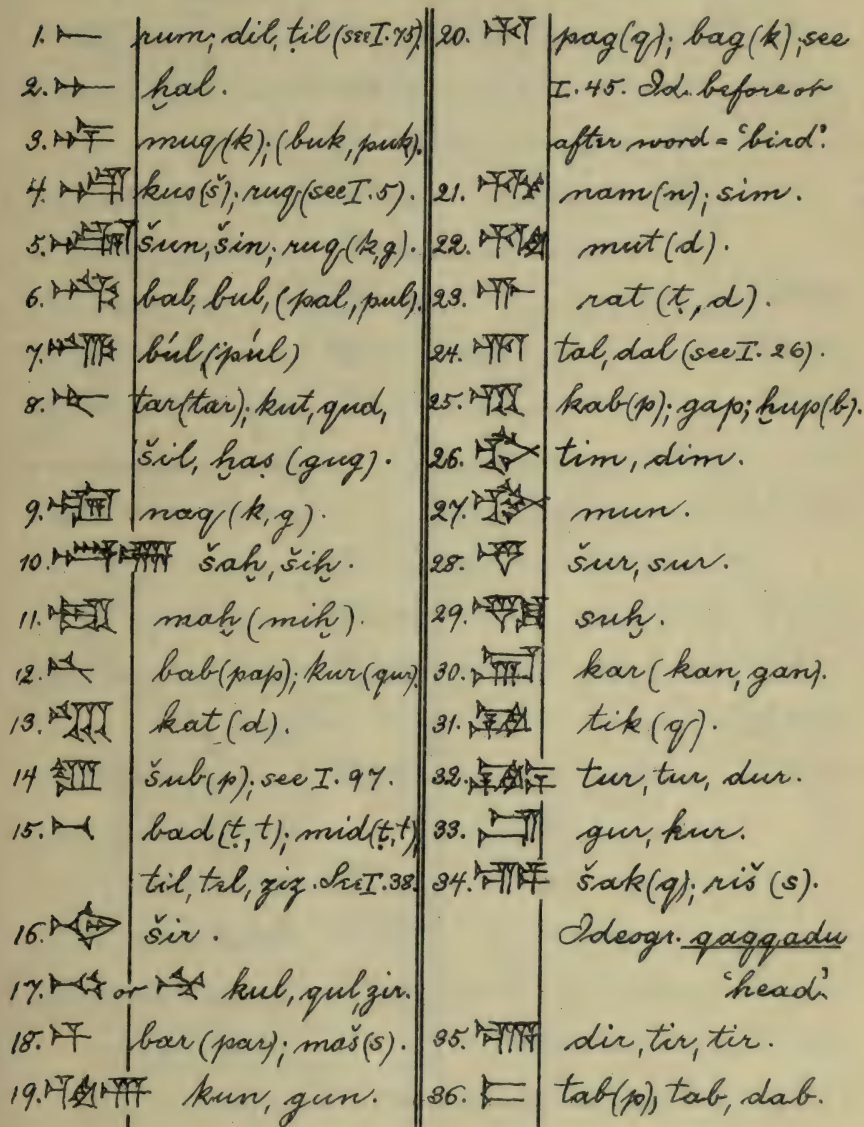 1. rum; dil, ṭil (see I.75)
2. ḫal.
3. muq(k); (buk, puk).
4. kus(š); ruq (see I.5).
5. šun, šin; ruq (k,g).
6. bal, bul, (pal, pul).
7. búl (púl)
8. tar(tar); kut, qud,
šil, ḫaṣ (gug).
9. naq (k, g).
10. šaḫ, šiḫ.
11. maḫ (miḫ).
12. bab (pap); kur (qur)
13. kat (d).
14 šub(p); see I. 97.
15. bad (ṭ, t); mid(ṭ,t)
til, tel, ziz. See I.38.
16. šir.
17. or kul, qul, zir.
18. bar (par); maš(s).
19. kun, gun.
20. pag(q); bag(k); see
I. 45. Id. before or
after word = 'bird'.
21. nam(n); sim.
22. mut (d).
23. rat (ṭ, d).
24. tal, dal (see I. 26).
25. kab(p); gap; ḫup(b).
26. tim, dim.
27. mun.
28. šur, sur.
29. suḫ.
30. kar (kan, gan).
31. tik (q).
32. tur, tur, dur.
33. gur, kur.
34. šak(q); riš (s).
Ideogr. qaqqadu
'head'.
35. dir, tir, tir.
36. tab(p), tab, dab.